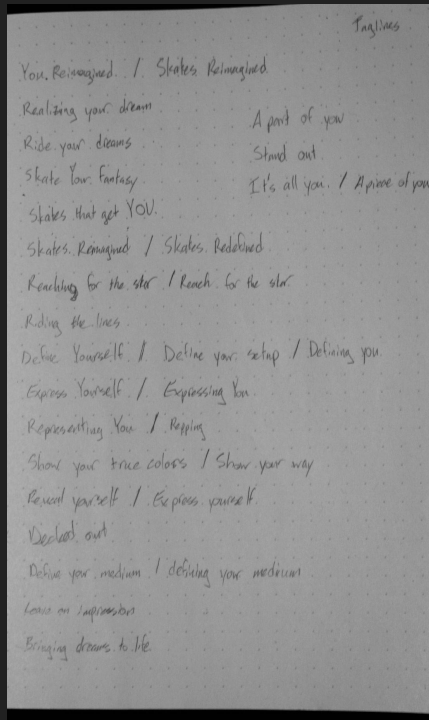 Taglines
You. Reimagined. / Skates Reimagined
Realizing your dream
Ride your dreams
Skate Your Fantasy
Skates that get YOU.
Skates. Reimagined / Skates. Redefined
Reaching for the star / Reach for the star.
Riding the lines
Define Yourself // Define your setup / Defining you
Express Yourself / Expressing You
Representing You / Repping
Show your true colors / Show your way
Reveal yourself / Express yourself
Decked out
Define your medium / defining your medium
Leave an impression
Bringing dreams to life.
A part of you
Stand out
It's all you. / A piece of you